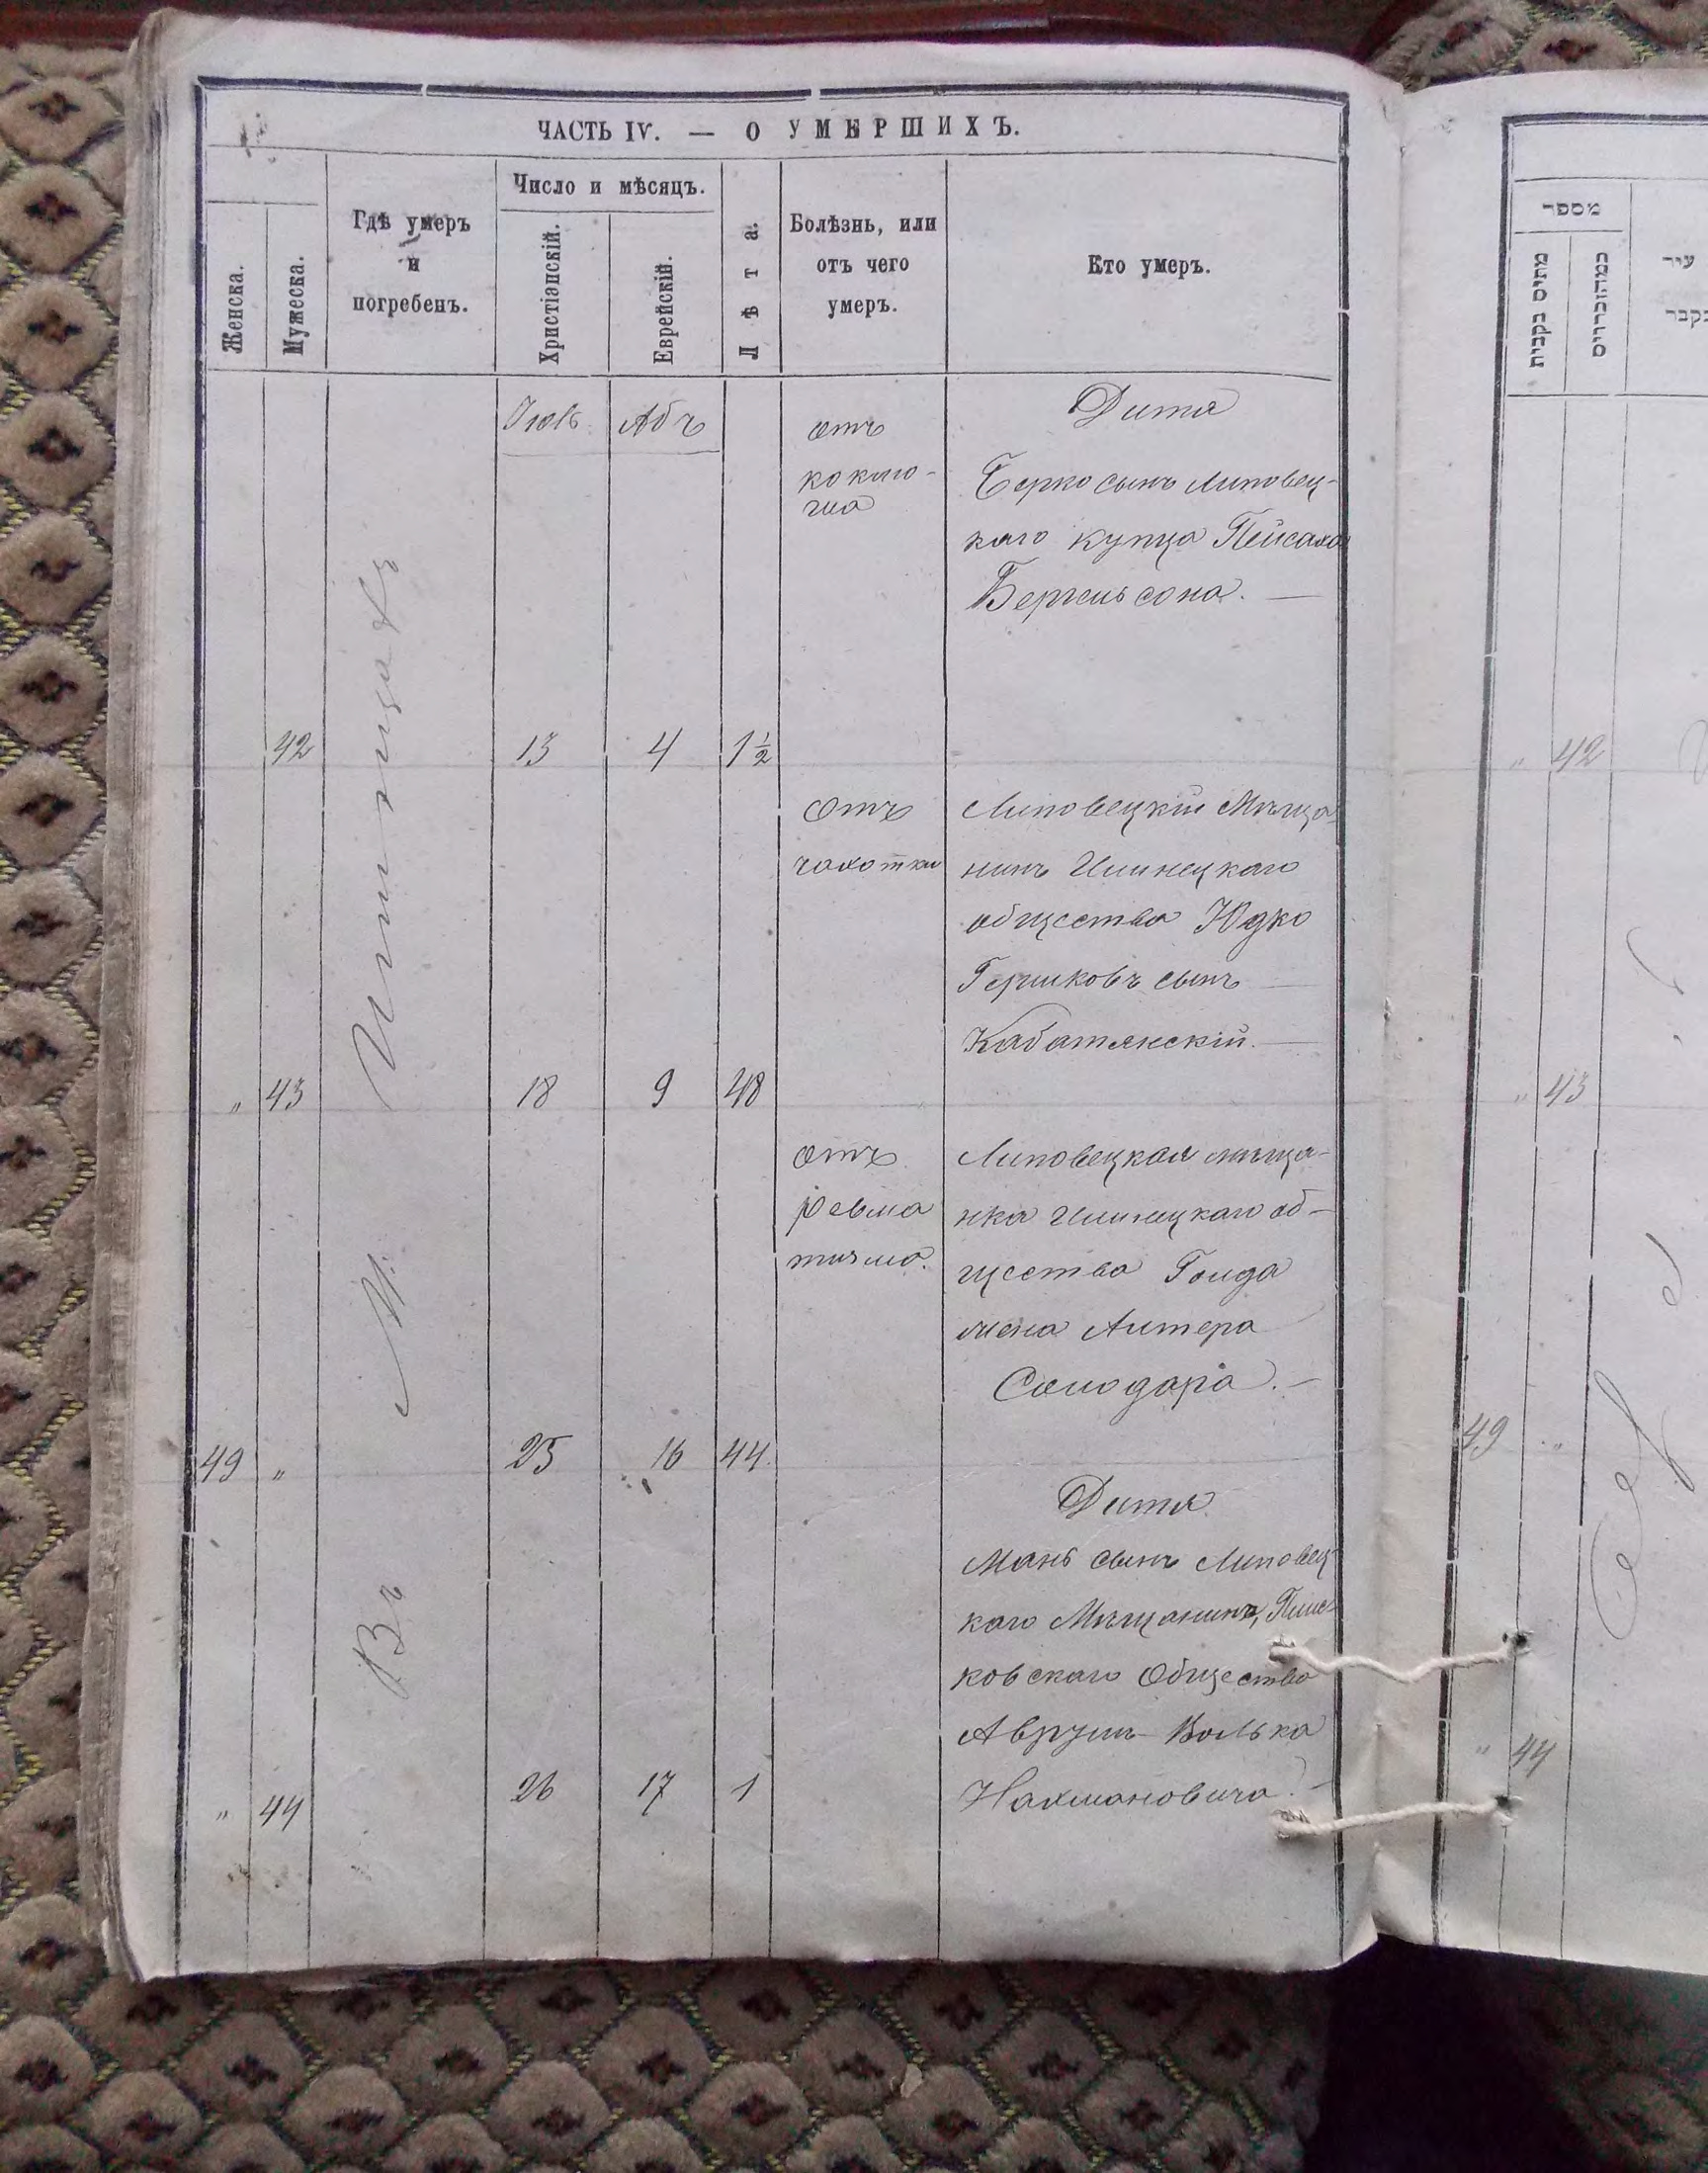 ЧАСТЬ IV. — О УМЕРШИХЪ.
Женска.
Мужеска.
Гдѣ умеръ
и
погребенъ.
Число и мѣсяцъ.
Христіанскій.
Еврейскій.
Лѣта.
Болѣзнь, или
отъ чего
умеръ.
Кто умеръ.
Въ М. Илинцахъ
Іюль Абъ
отъ
коклю-
ша
Дитя
Берко сынъ Липовец-
каго купца Пейсаха
Бергельсона. —
42 13 4 1½
отъ
чахотки
Липовецкій Мѣща-
нинъ Илинецкаго
общества Юдко
Гершковъ сынъ —
Кабатянскій. —
„ 43 18 9 48
отъ
ревма
тизма.
Липовецкая мѣща-
нка Илинецкаго об-
щества Голда
жена Алтера
Солодара. —
49 „ 25 16 44.
Дитя
Мань сынъ Липовец-
каго Мѣщанина,
ковскаго Общества
Аврумъ-Волька
Нахмановича. —
„ 44 26 17 1
מספר
עיר
„ 42
„ 43
49 „
„ 44